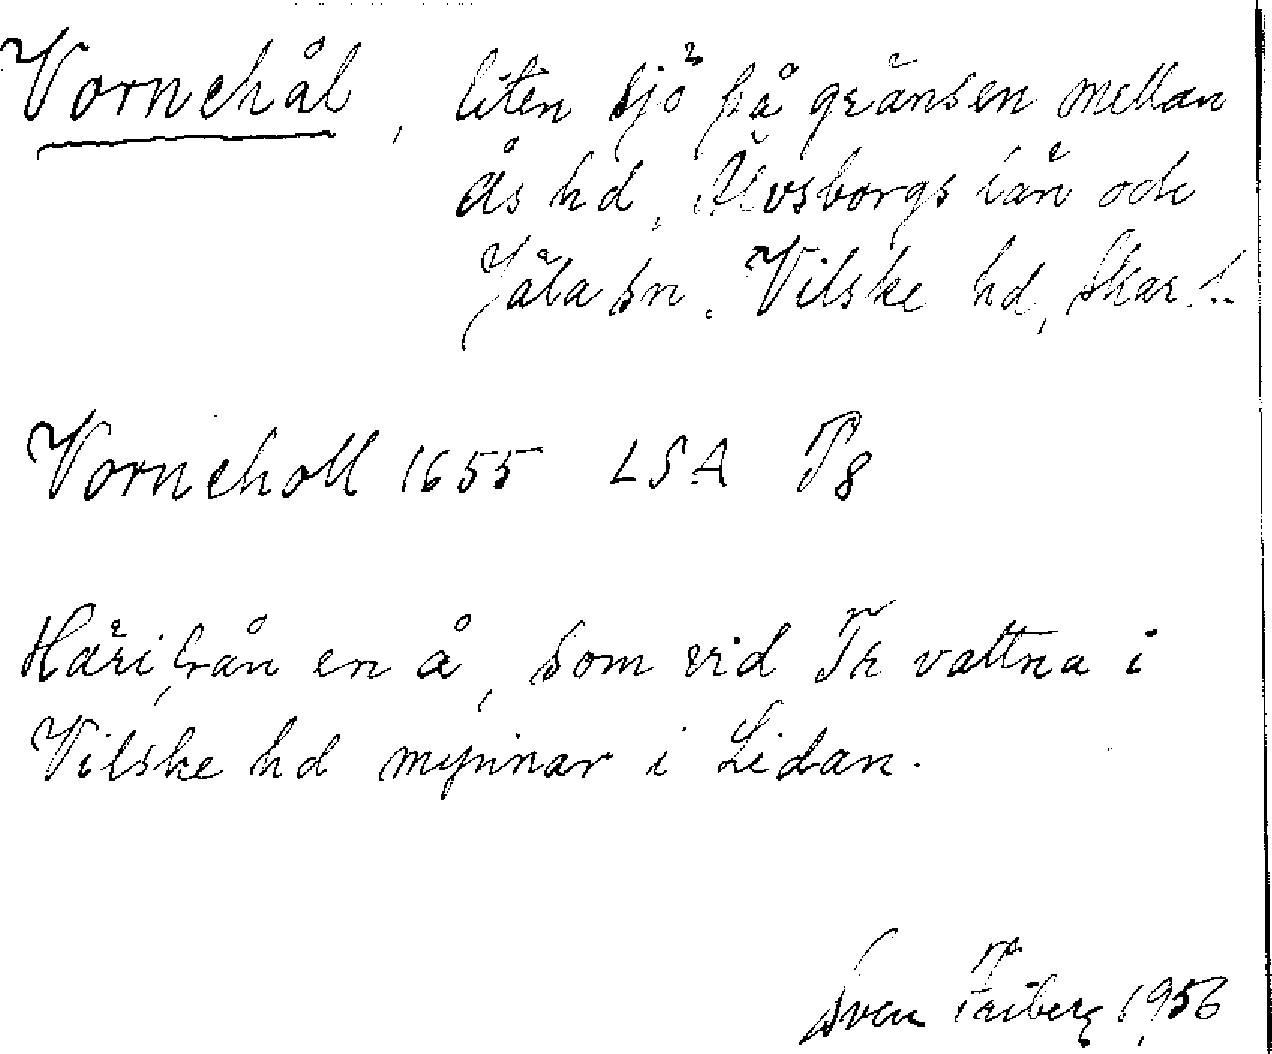 Vornehål, liten sjö på gränsen mellan
Ås hd, Älvsborgs län och
Jäla sn. Vilske hd, Skar. l.
Vorneholl 1655 LSA P8
Härifrån en å, som vid Tr vattna i
Vilske hd mynnar i Lidan.
Sven Friberg 1956